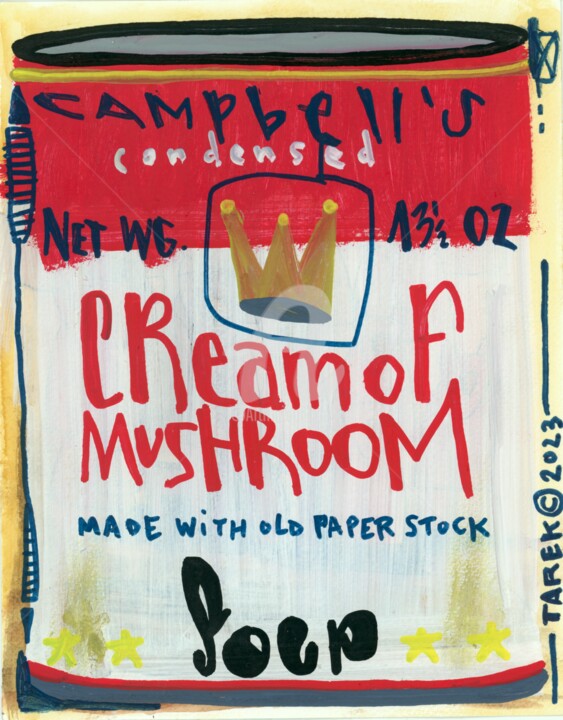 CAMpbell's
condensed
NET WG. 13½ OZ
CReamoF
MUSHROOM
MADE WiTH OLD PAPER STOCK
Soep
TAREK © 2023